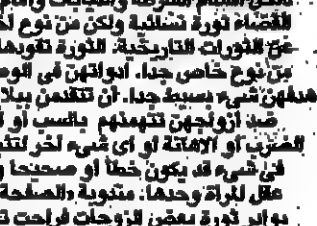 القضاء ثورة نسائية ولكن من نوع
عن الثورات التاريخية. الثورة تقودها
من نوع خاص جدا. ادواتهن في الوصـ
هدفهن شيء بسيط جدا. ان تتقدمن ببلا
ضد ازواجهن تتهمنهم بالسب أو
الضرب أو الاهانة لو اى شيء آخر
في شيء قد يكون خطأ أو صحيحا
عقل المرأة وحدها. مندوبة «الصفحة
بوادر ثورة بعض الزوجات فراحت